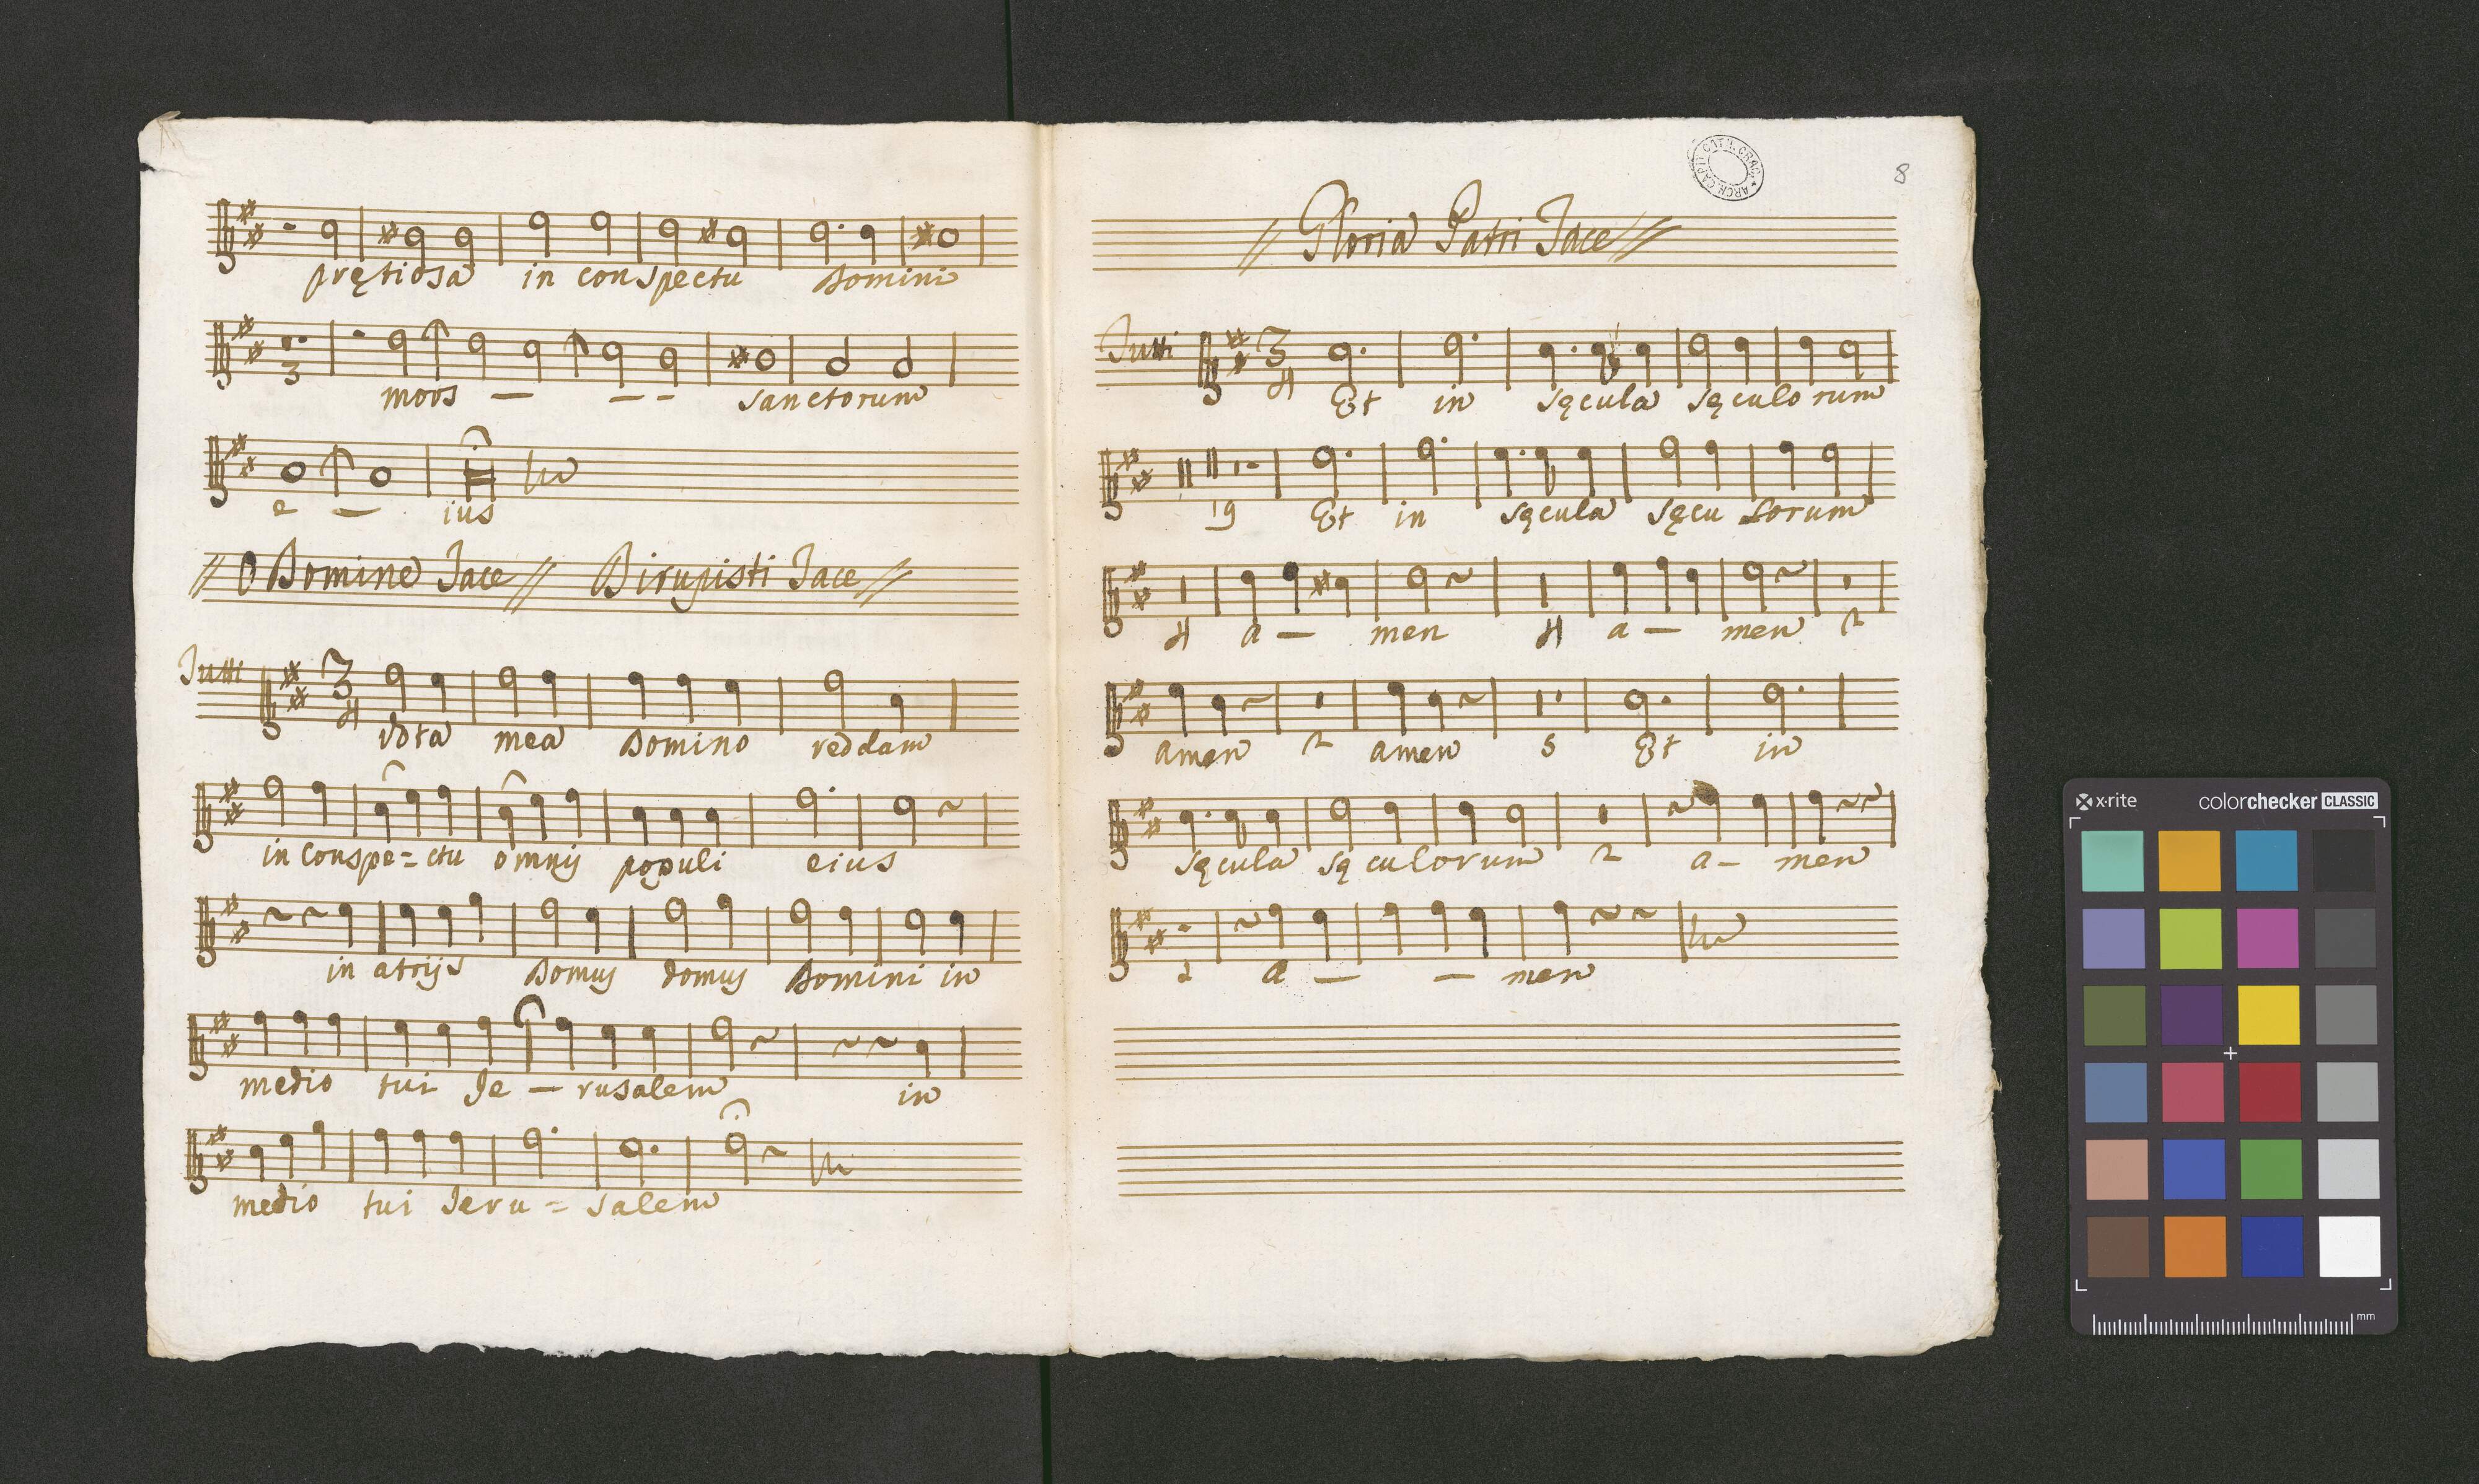 prętiosa in conspectu Domini
3 mors — — - sanctorum
e — ius
// O Domine Tace // Dirupisti Tace //
Tutti 3 4
vota mea Domino reddam
in conspe = ctu omnis populi eius
in atrijs Domus domus Domini in
medio tui Je — rusalem in
medio tui Jeru = salem
8
ARCH. CAPIT. CATH. CRAC.
// Gloria Patri Tace //
Tutti 3 4
Et in sęcula sęculorum
19 Et in sęcula sęculorum
4 a — men 4 a — men 2
amen 2 amen 5 Et in
sęcula sęculorum 2 a - men
2 a — — men
x-rite colorchecker CLASSIC
mm